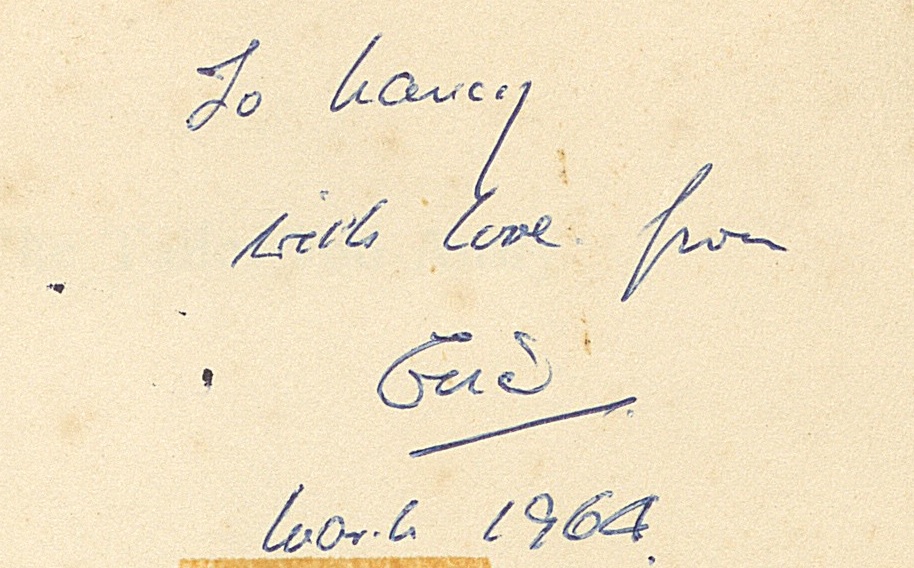 To Nancy
with love from
March 1964